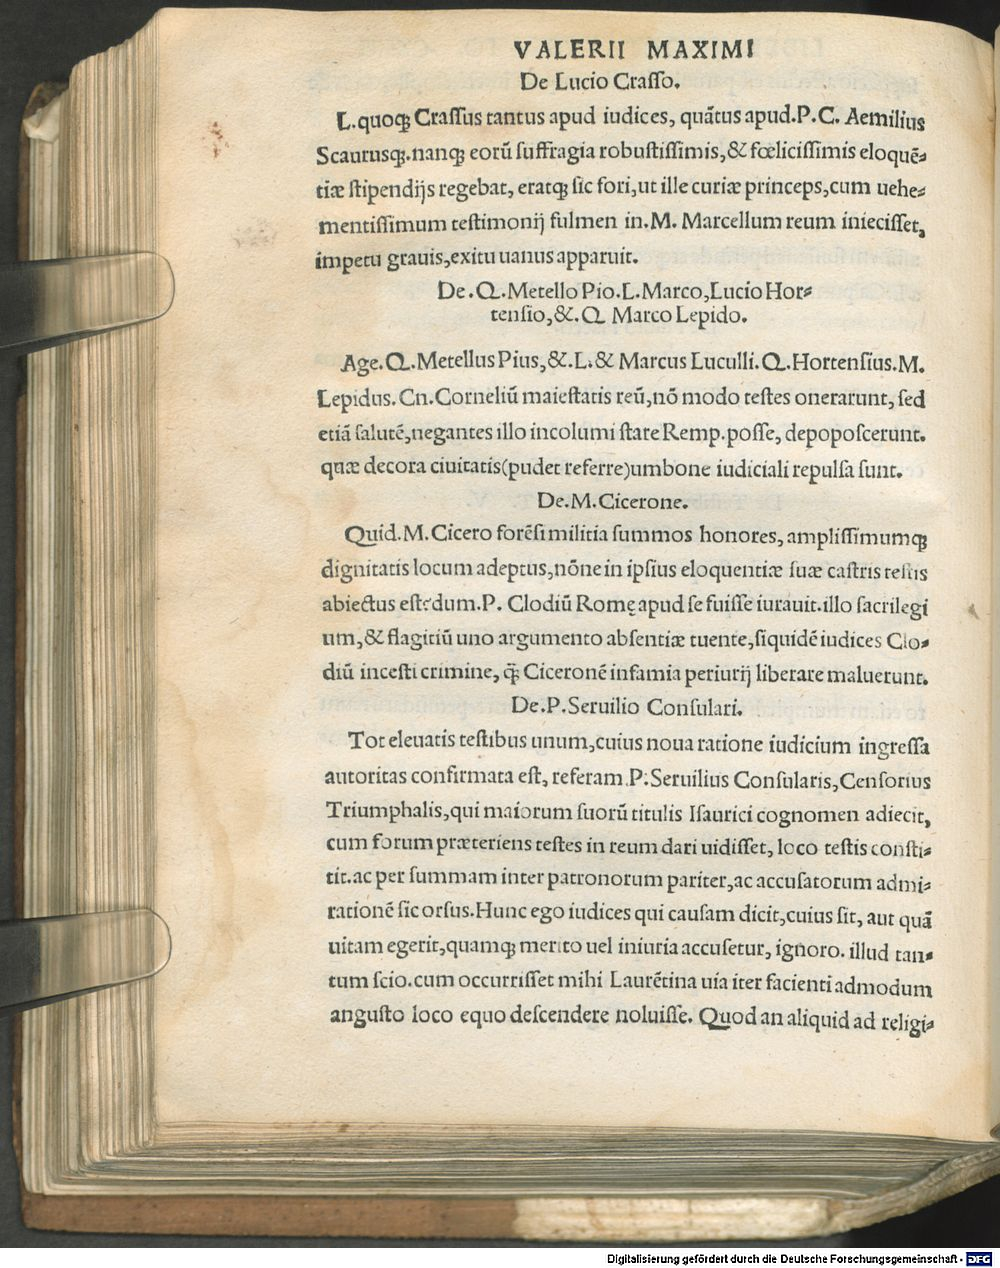 VALERII MAXIMI
De Lucio Crasso.
L.quoqꝫ Crassus tantus apud iudices, quãtus apud.P.C. Aemilius
Scaurusqꝫ.nanqꝫ eorũ suffragia robustissimis,& fœlicissimis eloquẽ-
tiæ stipendijs regebat, eratqꝫ sic fori,ut ille curiæ princeps,cum uehe-
mentissimum testimonij fulmen in.M. Marcellum reum iniecisset,
impetu grauis,exitu uanus apparuit.
De.Q.Metello Pio.L.Marco,Lucio Hor-
tensio,&.Q Marco Lepido.
Age.Q.Metellus Pius,&.L.& Marcus Luculli.Q.Hortensius.M.
Lepidus.Cn.Corneliũ maiestatis reũ,nõ modo testes onerarunt, sed
etiã salutẽ,negantes illo incolumi stare Remp.posse, depoposcerunt.
quæ decora ciuitatis(pudet referre)umbone iudiciali repulsa sunt.
De.M.Cicerone.
Quid.M.Cicero forẽsi militia summos honores, amplissimumqꝫ
dignitatis locum adeptus,nõne in ipsius eloquentiæ suæ castris testis
abiectus est:dum.P. Clodiũ Romę apud se fuisse iurauit.illo sacrilegi
um,& flagitiũ uno argumento absentiæ tuente,siquidẽ iudices Clo-
diũ incesti crimine, q̃ꝫ Ciceronẽ infamia periurij liberare maluerunt.
De.P.Seruilio Consulari.
Tot eleuatis testibus unum,cuius noua ratione iudicium ingressa
autoritas confirmata est, referam.P.Seruilius Consularis,Censorius
Triumphalis,qui maiorum suorũ titulis Isaurici cognomen adiecit,
cum forum præteriens testes in reum dari uidisset, loco testis consti-
tit.ac per summam inter patronorum pariter,ac accusatorum admi-
rationẽ sic orsus.Hunc ego iudices qui causam dicit,cuius sit, aut quã
uitam egerit,quamqꝫ merito uel iniuria accusetur, ignoro. illud tan-
tum scio.cum occurrisset mihi Laurẽtina uia iter facienti admodum
angusto loco equo descendere noluisse. Quod an aliquid ad religi-
Digitalisierung gefördert durch die Deutsche Forschungsgemeinschaft - DFG